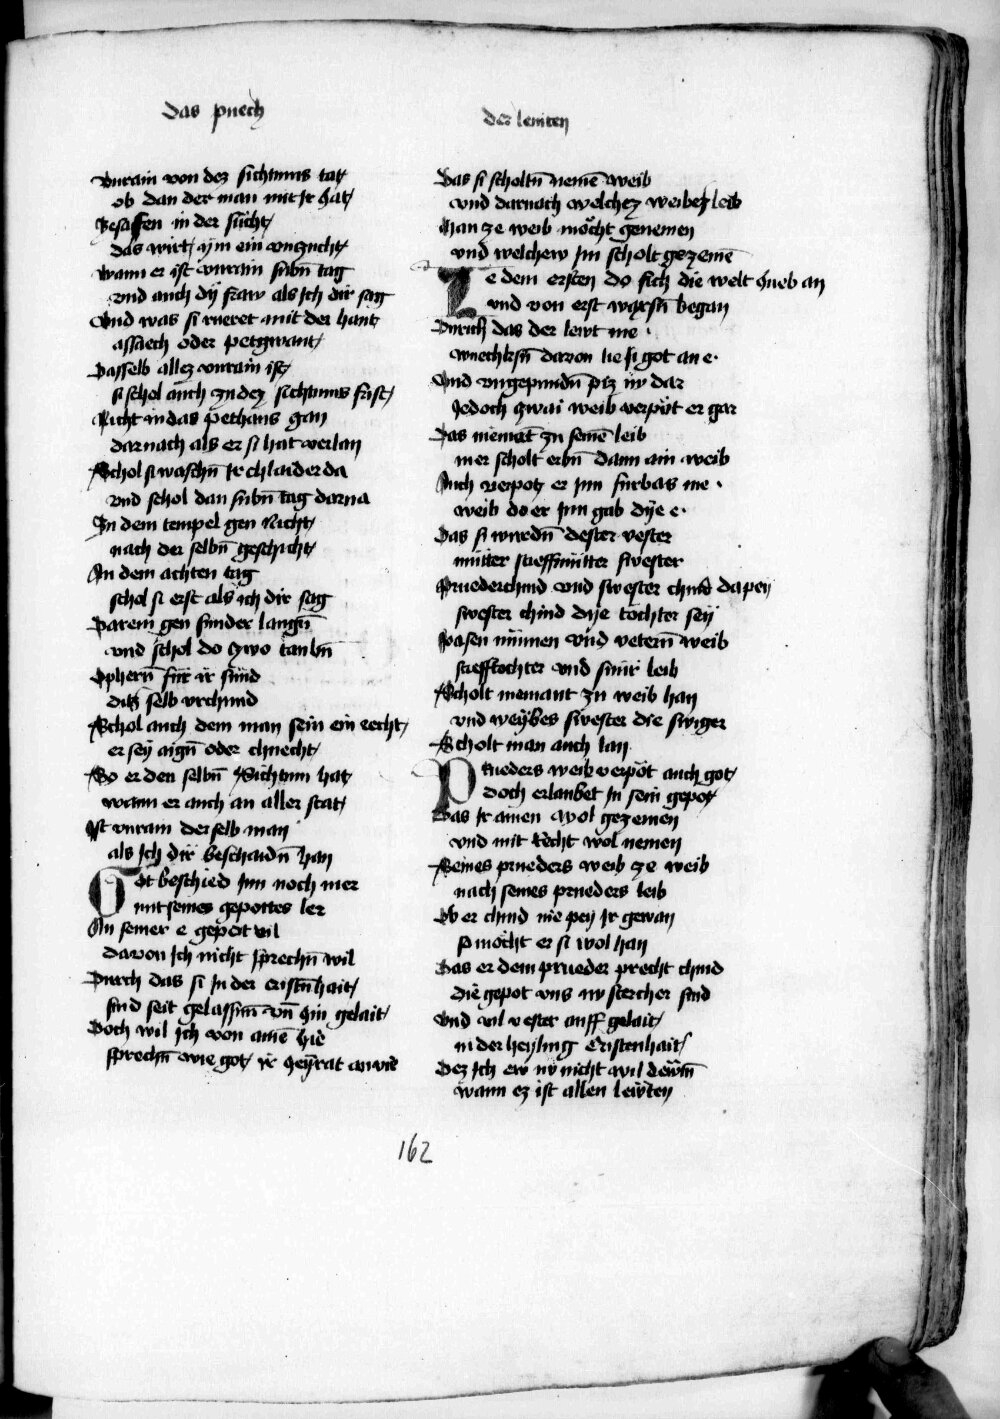 das puech
der leuiten
Vnrain von dez sichtums tat
ob dan der man mit Ir hat
Besaffen in der sucht
das wirt ym ein vnzucht
wann er ist vnrain sibn̄ tag
vnd auch dÿ fraw als Ich dir sag
Vnd was si rueret mit der hant
assaech oder petgwant
Dasselb allez vnrain ist
si schol auch zu dez sichtums frist
Nicht in das pethaus gan
dar nach als er si hat verlan
Schol si waschn̄ Ir chlaider da
vnd schol dan sibn̄ tag darna
In dem tempel gen Nicht
nach der selbn̄ geschicht
An dem achten tag
schol si erst als ich dir sag
Darein gen sunder langn̄
vnd schol do zwo taubn̄
Ophern̄ für ir sünd
ditz selb vrchund
Schol auch dem man sein ein recht
er seÿ aign̄ oder chnecht
So er den selbn̄ Sichtum hat
wann er auch an aller stat
Ist vnrain der selb man
als Ich dir beschaidn̄ han
Got beschied Inn noch mer
mit seines gepottes ler
An seiner e gepot vil
davon Ich nicht sprechn̄ wil
Durch das si In der cristn̄hait
sind seit gelassn̄ vn̄ hin gelait
Doch wil Ich von aine hie
sprechn̄ wie got ir heÿrat an vie
Das si scholtn̄ neme weib
vnd darnach welchez weibez leib
Man ze weib möcht genemen
vnd welchew Im scholt gezeme
Ze dem ersten do sich die welt hueb an
vnd von erst waxsn̄ began
Durich das der lewt me
wuechksn̄ davon lie si got an e
Vnd vngepundn̄ piz nv dar
Jedoch zwai weib verpöt er gar
Das niemāt zu seinē leib
mer scholt erbn̄ dann ain weib
Auch verpotz er Inn fürbas me
weib do er Inn gab dÿe e
Das si wurdn̄ dester vester
müter stieffmüter swester
Prueder chind vnd swester chind da peÿ
swester chind dÿe tochter seÿ
Pasen mümen vnd vetern̄ weib
stieftochter vnd snür leib
Scholt niemant zu weib han
vnd weÿbes swester die swiger
Scholt man auch lan
Prueders weib verpöt auch got
doch erlaubet In sein gepot
Das Ir ainen wol gezemen
vnd mit Recht wol nemen
Seines prueders weib ze weib
nach seines prueders leib
Ob er chind nie peÿ Ir gewan
so möcht er si wol han
Das er dem prueder precht chind
die gepot vns nv stercher sind
Vnd vil vester auff gelait
in der heyling Cristenhait
Dez Ich ew nv nicht wil dewtn̄
wann ez ist allen lewten
162